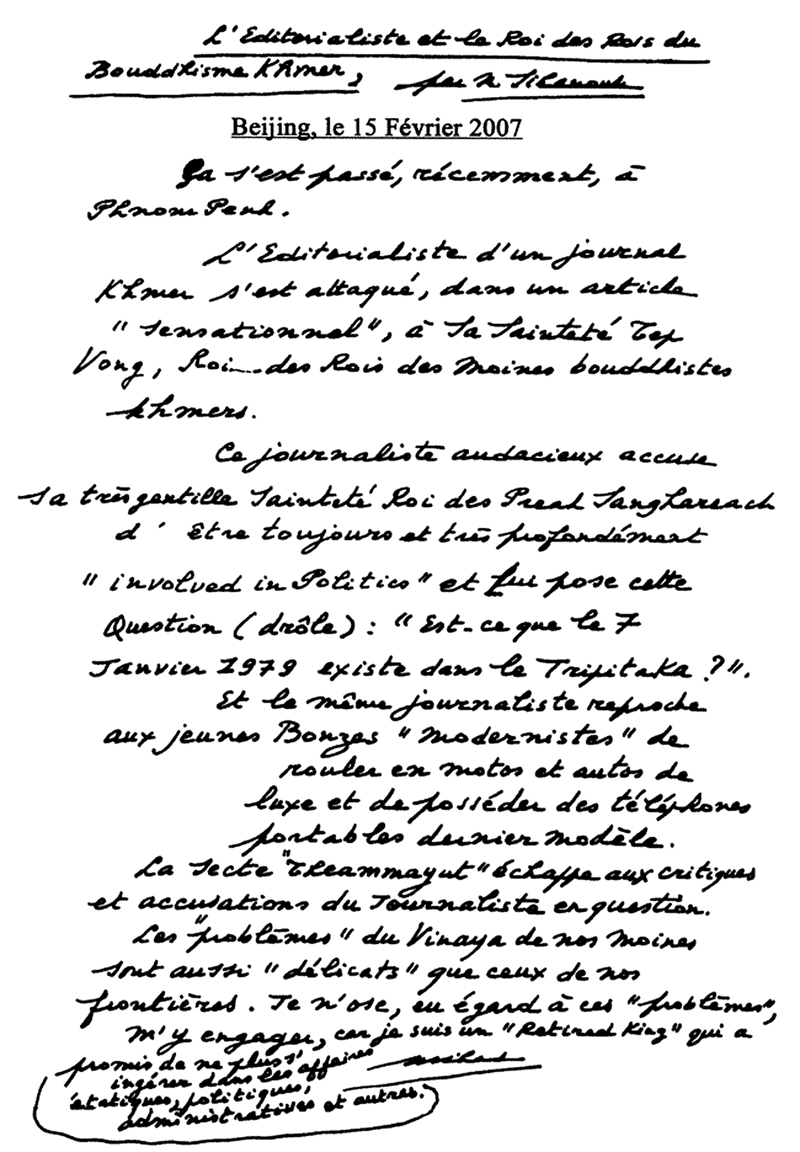 L'Editorialiste et le Roi des Rois du
Bouddhisme Khmer, par N. Sihanouk
Beijing, le 15 Février 2007
Ça s'est passé, récemment, à
Phnom Penh.
L'Editorialiste d'un journal
Khmer s'est attaqué, dans un article
"sensationnel", à Sa Sainteté Tep
Vong, Roi des Rois des Moines bouddhistes
khmers.
Ce journaliste audacieux accuse
Sa très gentille Sainteté Roi des Preah Sanghareach
d' être toujours et très profondément
"involved in Politics" et lui pose cette
Question (drôle) : "Est-ce que le 7
Janvier 1979 existe dans le Tripitaka ?".
Et le même journaliste reproche
aux jeunes Bonzes "modernistes" de
rouler en motos et autos de
luxe et de posséder des téléphones
portables dernier modèle.
La Secte "Theammayut" échappe aux critiques
et accusations du Journaliste en question.
Les "problèmes" du Vinaya de nos Moines
sont aussi "délicats" que ceux de nos
frontières. Je n'ose, eu égard à ces "problèmes",
m'y engager, car je suis un "Retired King" qui a
promis de ne plus s'
ingérer dans les affaires
étatiques, politiques,
administratives et autres.